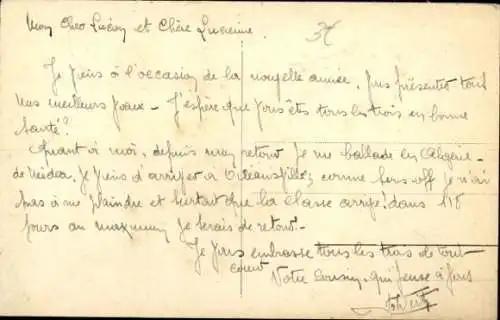 Mon Cher Lucien et Chère Lucienne.
Je viens à l'occasion de la nouvelle année, vous présenter tout
mes meilleurs vœux - J'espère que vous êtes tous les trois en bonne
santé?
Quant à moi, depuis mon retour je me ballade en Algérie -
Je viens d'arriver à Orléansville, comme sous-off je n'ai
pas à me plaindre et surtout que la classe arrive! dans 118
jours au maximum je serais de retour. -
Je vous embrasse tous les trois de tout
cœur
Votre Cousin, qui pense à vous